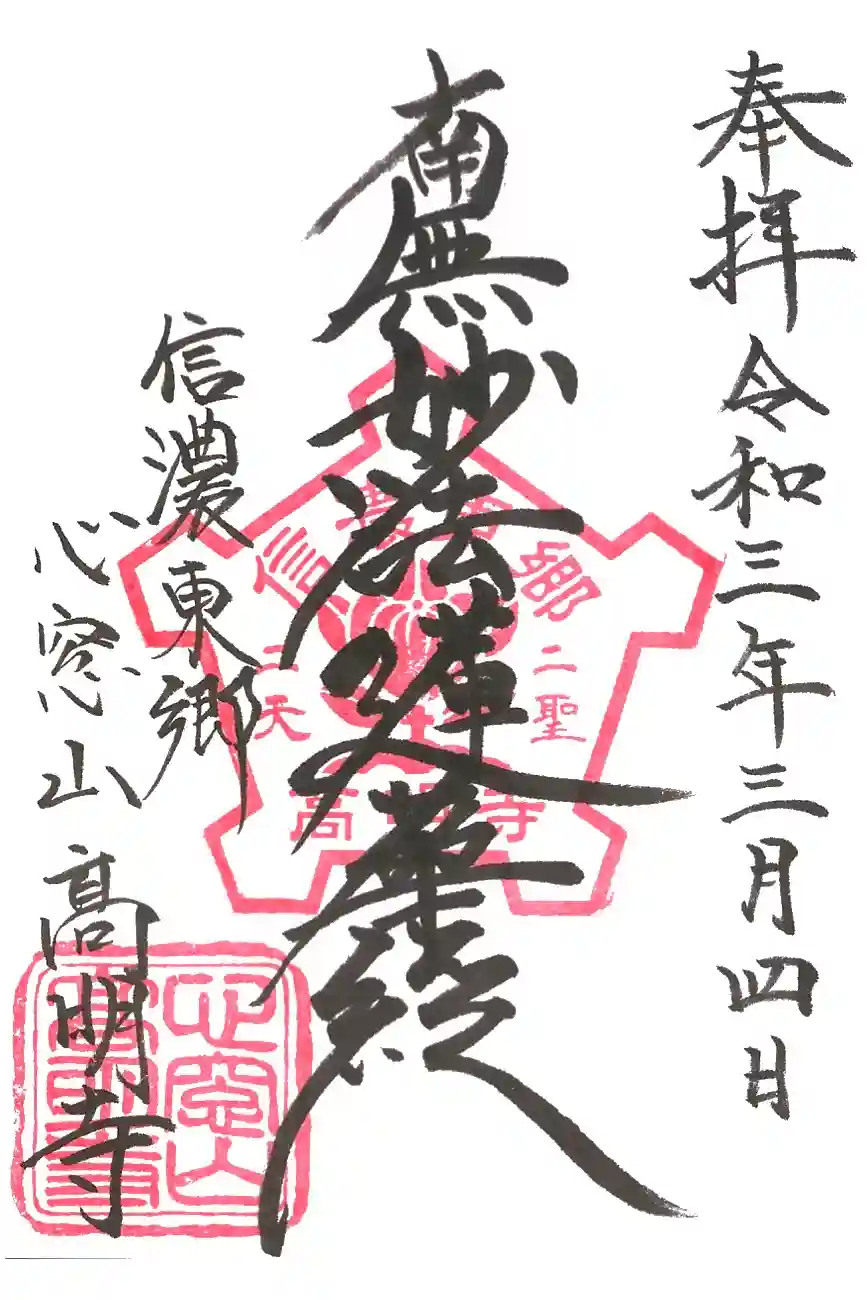 奉拝 令和三年三月四日
南無妙法蓮華経
信濃東郷
心窓山 高明寺
二聖
二天
高明寺
心窓山
高明寺